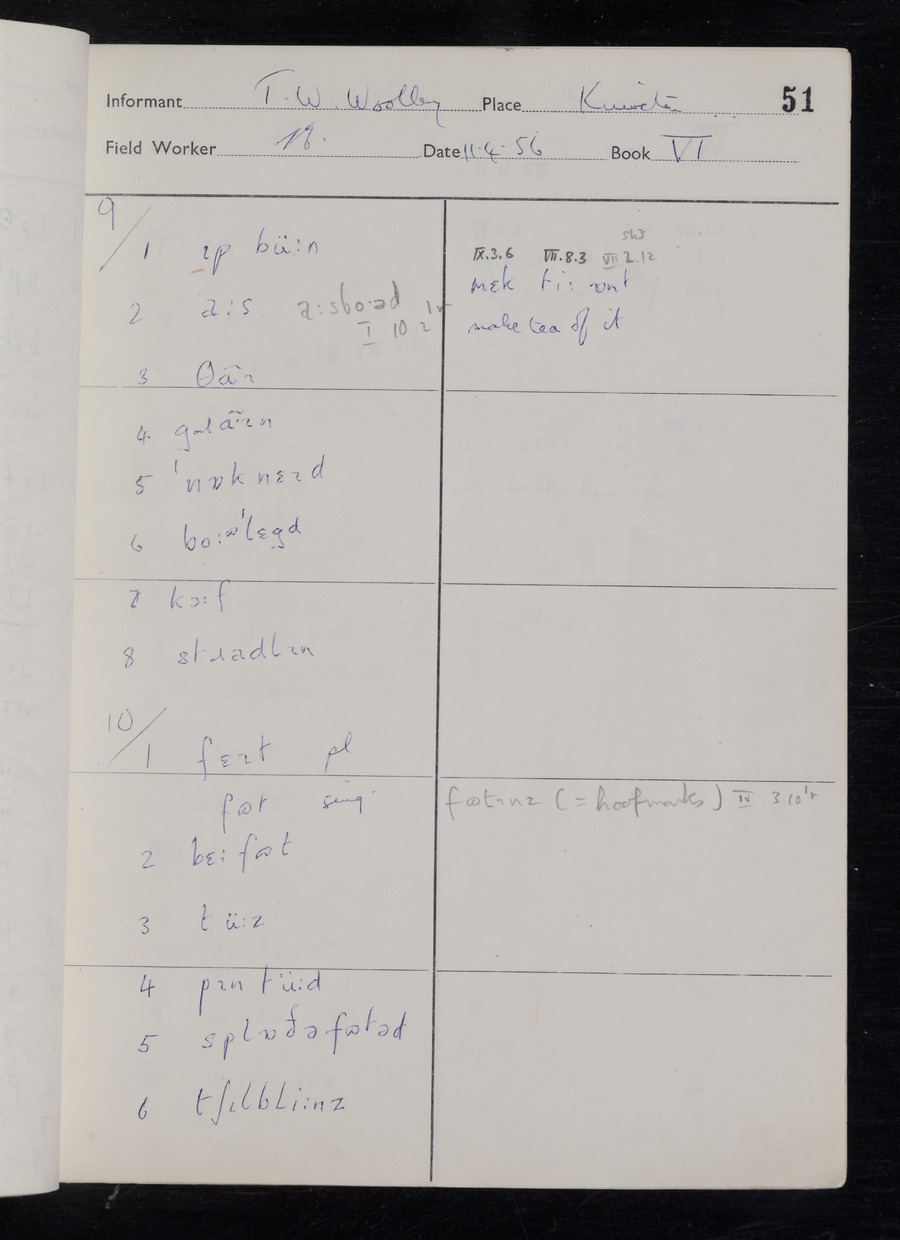 Informant T. W. Woolley Place Kniveton 51
Field Worker Date 11·4·56 Book VI
9/1 ɪp bü:n
2 a:s a:sbo:əd
I 10 2
3 θaɪ
4 gɹaɪn
5 'nɒk nɛɪd
6 bo:ʷ'lɛgd
7 kɔ:f
8 stɹadlɪn
10/1 fɛɪt pl
fɷt sing
2 bɛ: fɷt
3 tü:z
4 pɪn tü:d
5 splɒðəfɷtəd
6 tʃɪlbli:nz
sh3
IX.3.6 VII.8.3 VII 2.12
mɛk ti: ɒnt
make tea of it
fɷtɪnz (= hoofmarks) IV 3.10